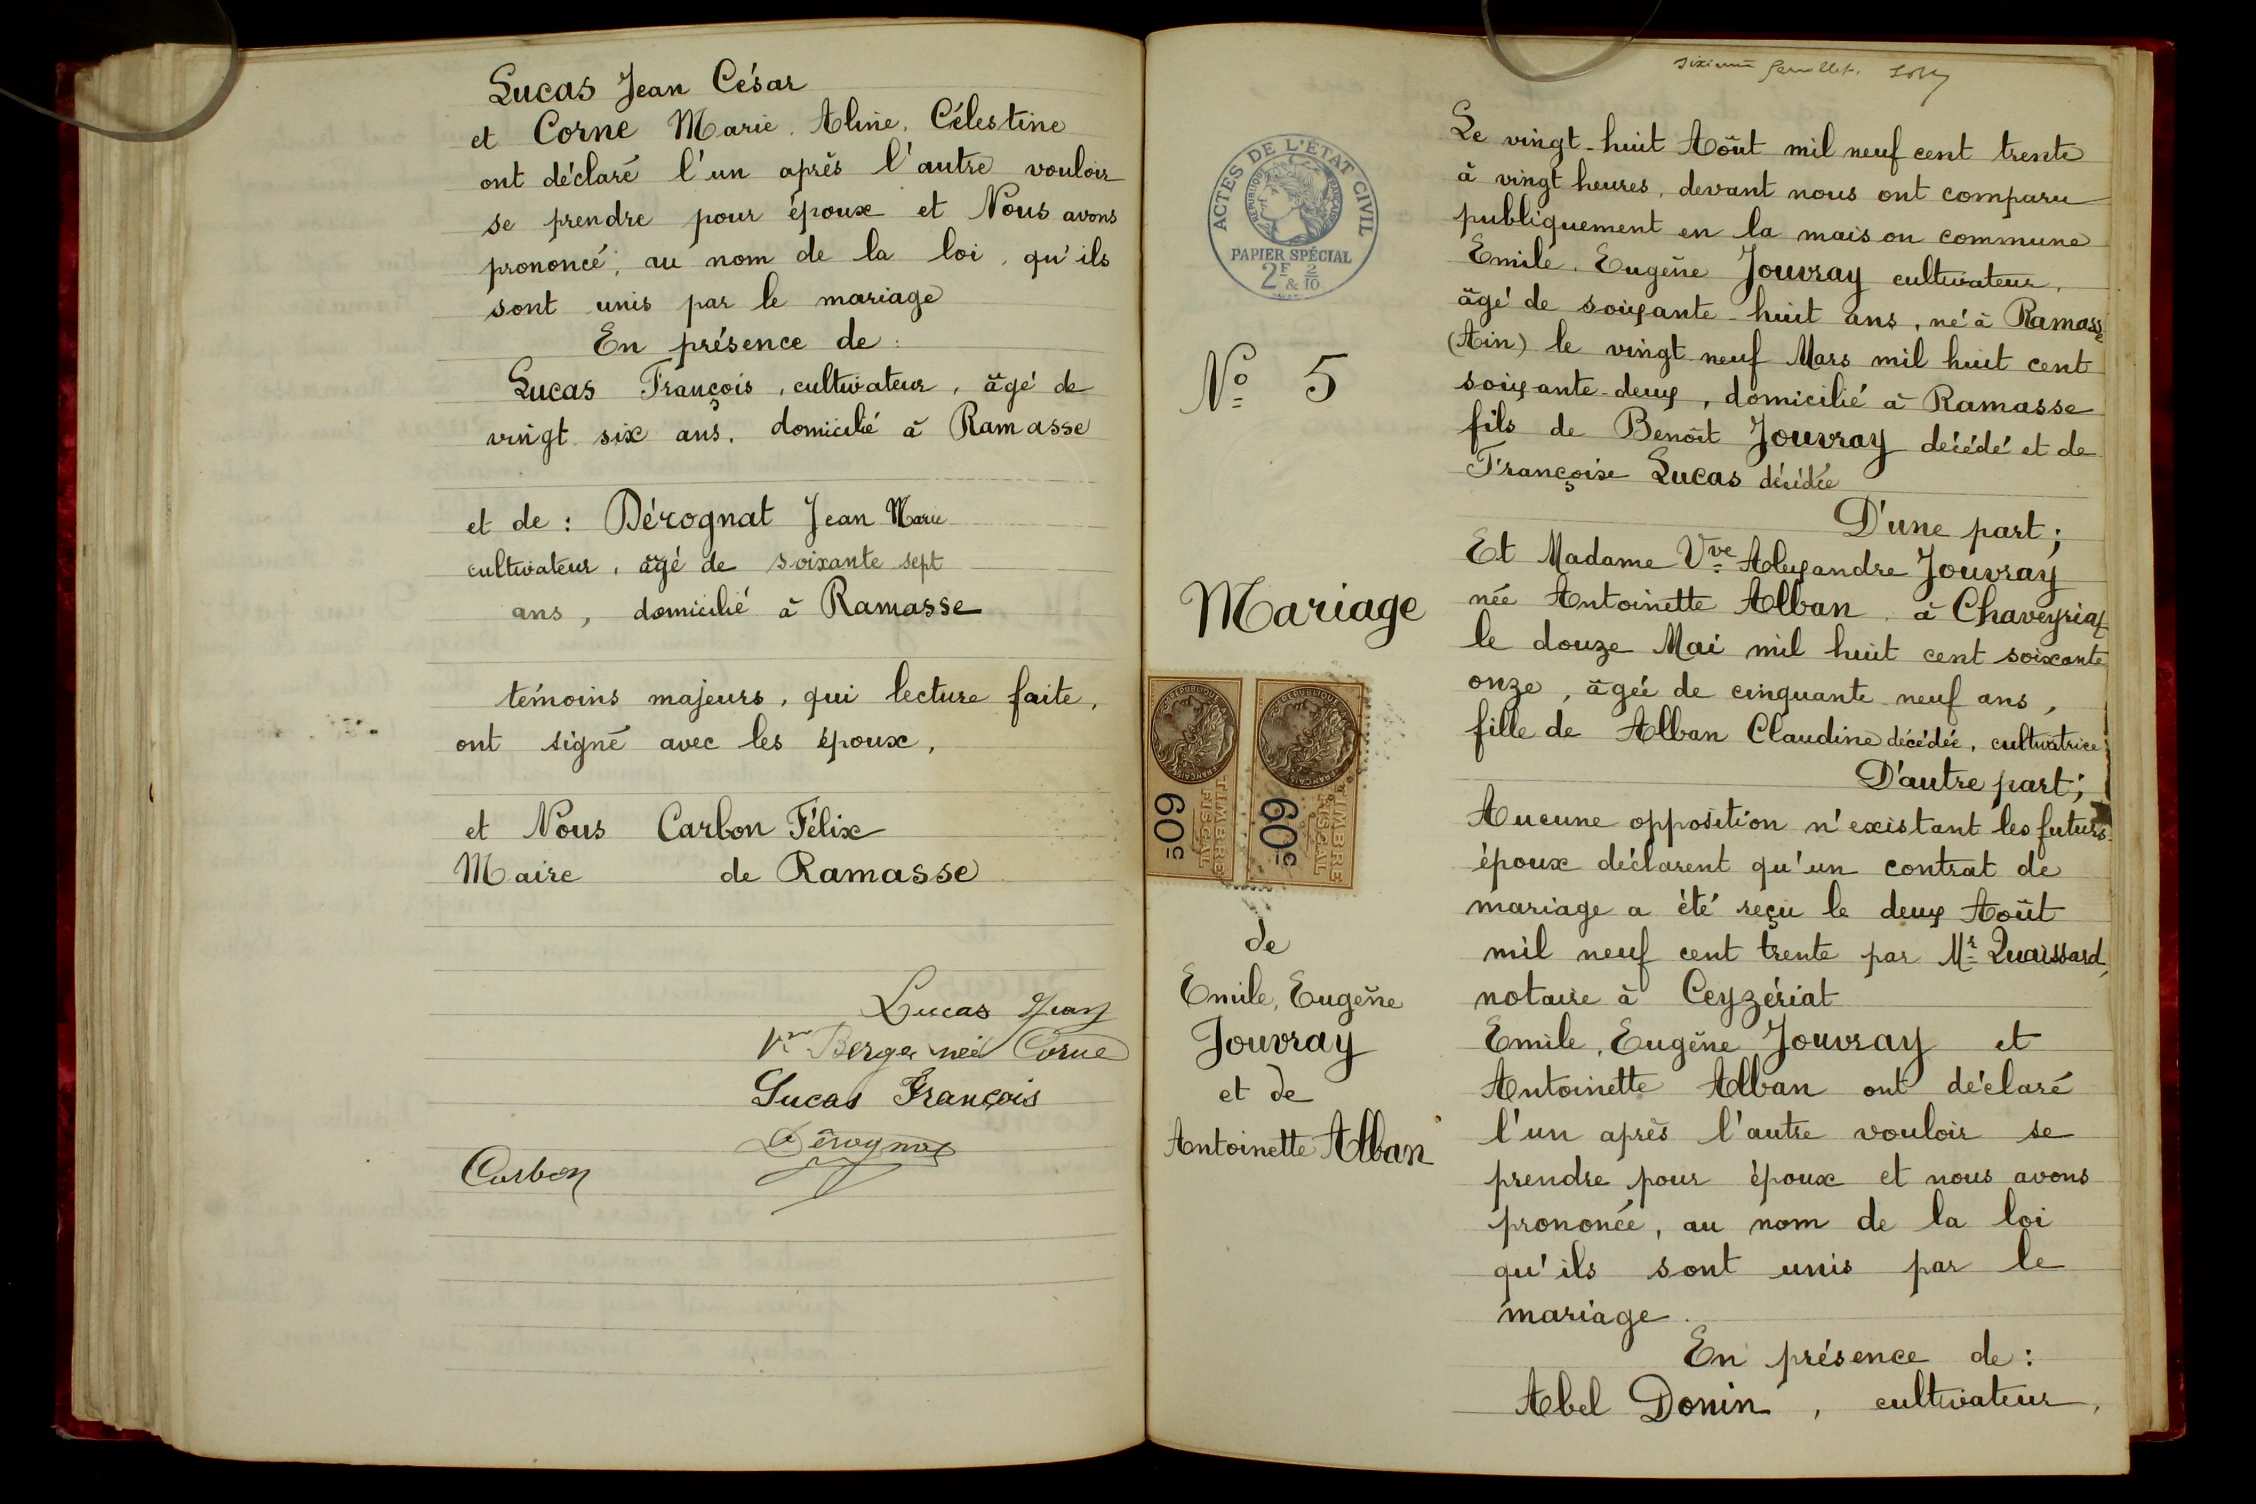 Lucas Jean César
et Corne Marie. Aline. Célestine
ont déclaré l'un après l'autre vouloir
se prendre pour époux et Nous avons
prononcé, au nom de la loi, qu'ils
sont unis par le mariage
En présence de :
Lucas François, cultivateur, âgé de
vingt six ans, domicilié à Ramasse
et de : Dérognat Jean Marie
cultivateur, âgé de soixante sept
ans, domicilié à Ramasse
témoins majeurs, qui lecture faite,
ont signé avec les époux,
et Nous Carbon Félix
Maire de Ramasse
Lucas Jean
Vve Berger née Corne
Lucas François
Dérognat
Carbon
sixième feuillet.
ACTES DE L'ÉTAT CIVIL
RÉPUBLIQUE FRANÇAISE
PAPIER SPÉCIAL
2F & 2/10
N° 5
Mariage
RÉPUBLIQUE FRANÇAISE
TIMBRE FISCAL
60c
RÉPUBLIQUE FRANÇAISE
TIMBRE FISCAL
60c
de
Emile, Eugène
Jouvray
et de
Antoinette Alban
Le vingt-huit Août mil neuf cent trente
à vingt heures, devant nous ont comparu
publiquement en la maison commune
Emile, Eugène Jouvray cultivateur,
âgé de soixante-huit ans, né à Ramasse
(Ain) le vingt neuf Mars mil huit cent
soixante-deux, domicilié à Ramasse
fils de Benoît Jouvray décédé et de
Françoise Lucas décédée
D'une part ;
Et Madame Vve Alexandre Jouvray
née Antoinette Alban à Chaveyriat
le douze Mai mil huit cent soixante
onze, âgée de cinquante neuf ans,
fille de Alban Claudine décédée, cultivatrice
D'autre part ;
Aucune opposition n'existant les futurs
époux déclarent qu'un contrat de
mariage a été reçu le deux Août
mil neuf cent trente par Mr Quaissard,
notaire à Ceyzériat
Emile, Eugène Jouvray et
Antoinette Alban ont déclaré
l'un après l'autre vouloir se
prendre pour époux et nous avons
prononcé, au nom de la loi
qu'ils sont unis par le
mariage.
En présence de :
Abel Donin, cultivateur,